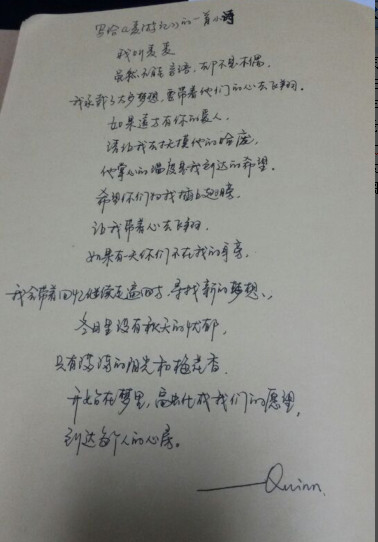 写给《麦麦游记》的一首小诗
我叫麦麦
虽然不能言语，却不是木偶。
我承载了太多梦想，要带着他们的心去飞翔。
如果远方有你的爱人，
请让我去抚摸他的脸庞，
他掌心的温度是我到达的希望。
希望你们给我插上翅膀，
让我带着心去飞翔。
如果有一天你们不在我的身旁，
我会带着回忆继续走遍四方，寻找新的梦想、，
冬日里没有秋天的忧郁，
只有满满的阳光和梅花香。
开始在梦里，
我们的愿望，
到达每个人的心房。
——Quinn.